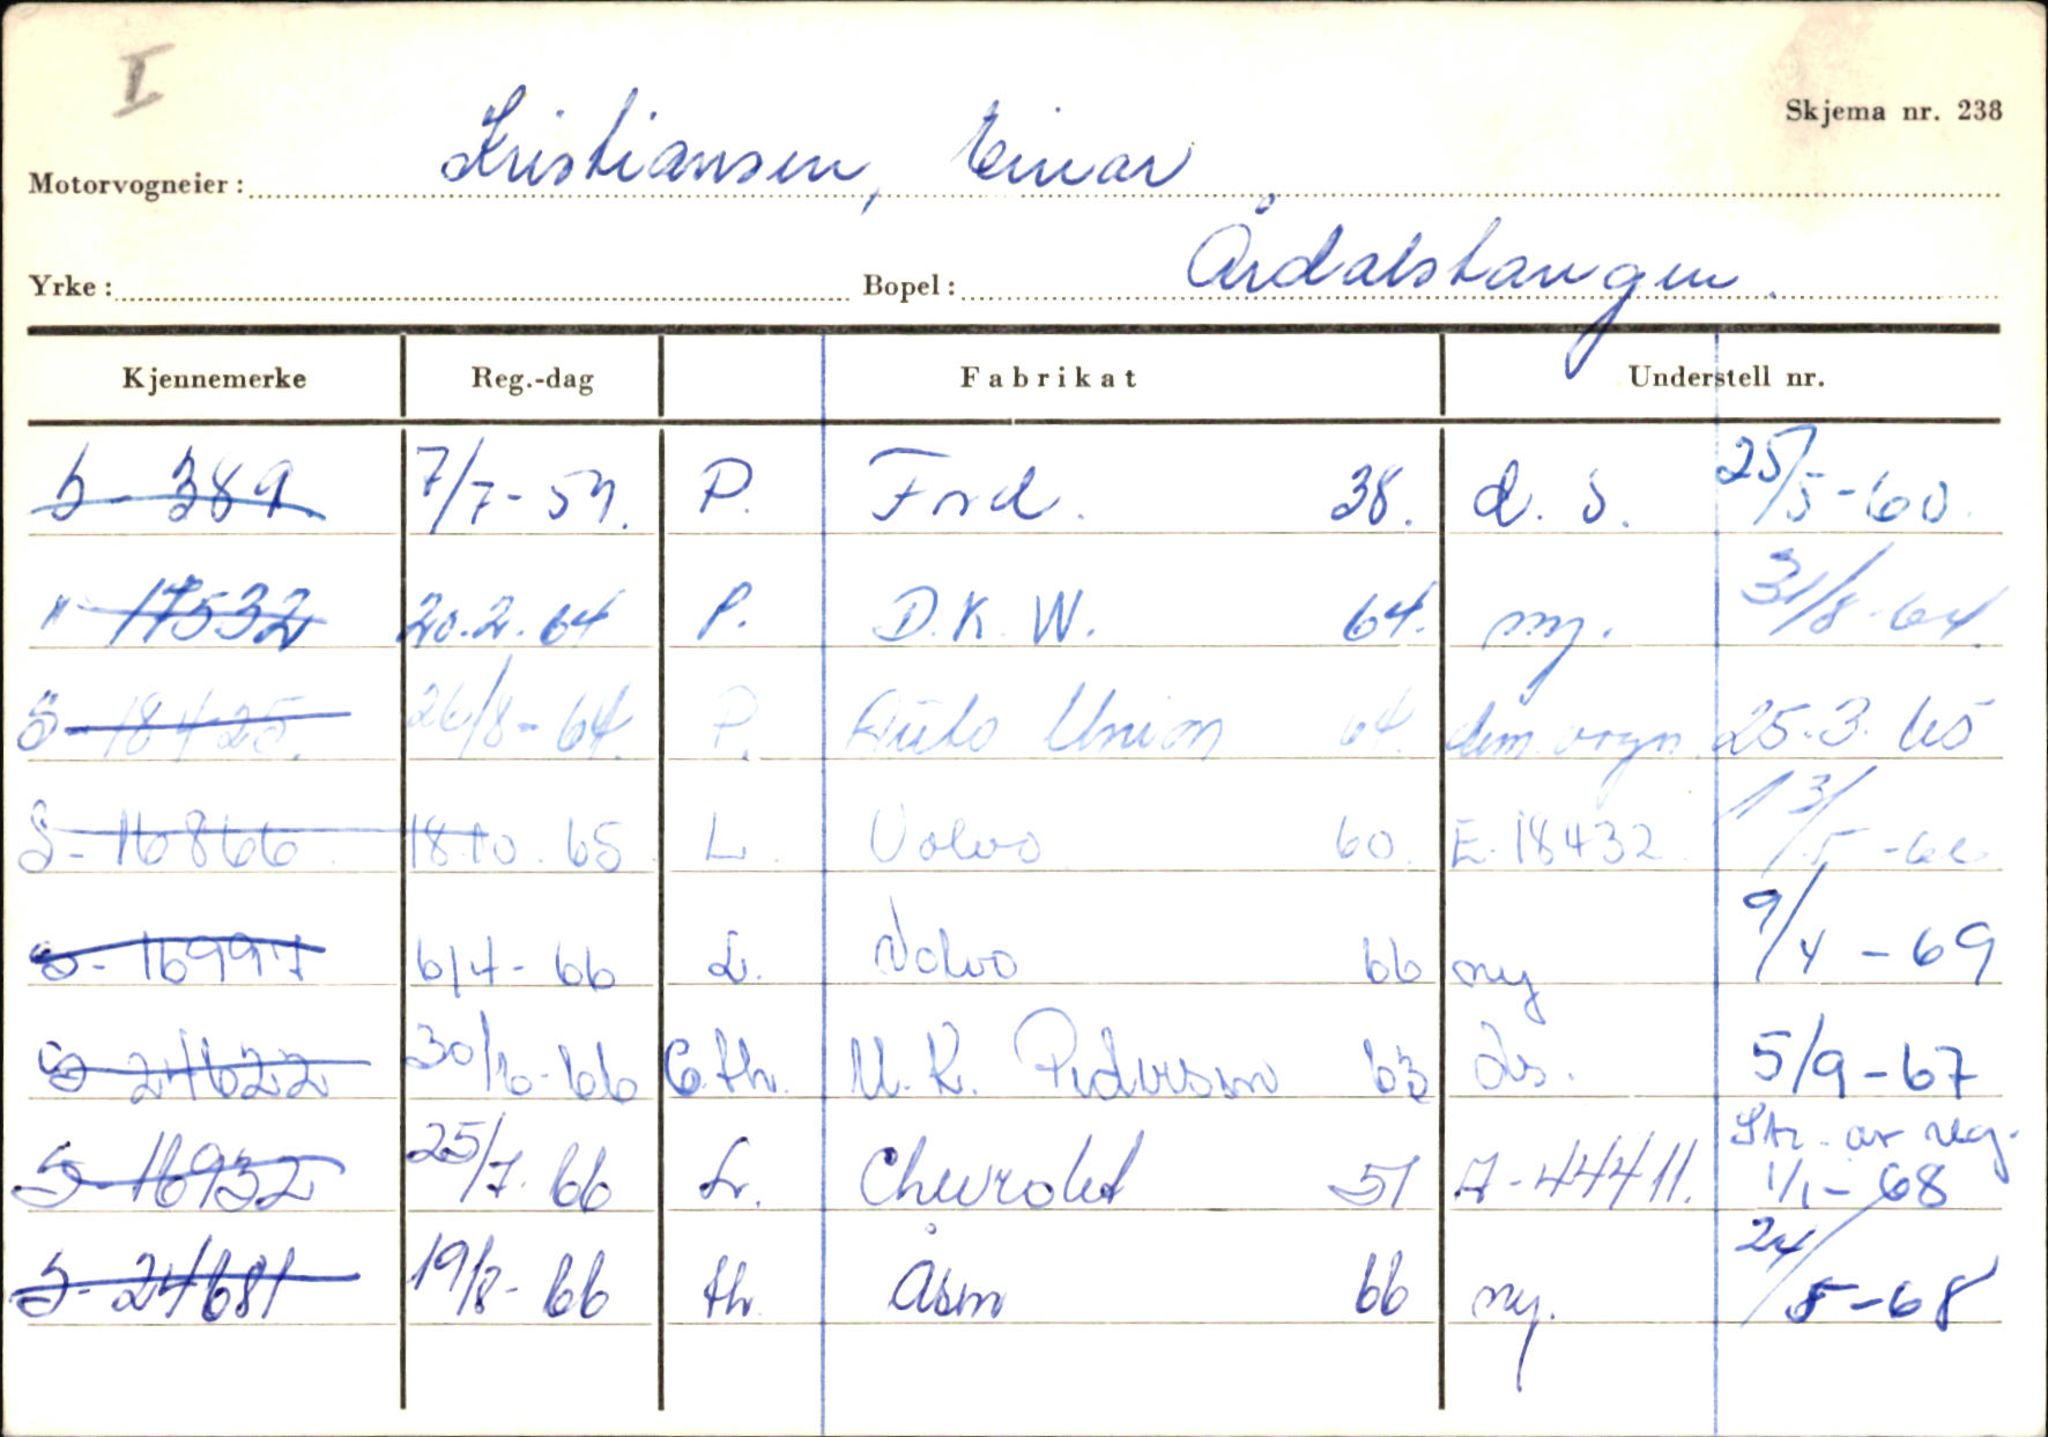 I
Skjema nr. 238
Motorvogneier: Kristiansen, Einar
Yrke: Bopel: Årdalstangen.
Kjennemerke Reg.-dag Fabrikat Understell nr.
S- 389 7/7- 59. P. Ford. 38. d. s. 25/5-60.
" 17532 20.2.64 P. D.K.W. 64. ny. 31/8-64.
S-18425. 26/8-64. P. Auto Union 64. dim. vogn. 25.3.65
S-16866. 18.10.65 L. Volvo 60. E.18432. 13/5-66
S-16997 6/4-66 L. Volvo 66 ny 9/4-69
S 24622 30/6-66 C.th. M.K. Pedersen 63 ds. 5/9-67
S-16932 25/7.66 L. Chevrolet 51 A-44411. Str. av reg. 1/1-68
S-24681 19/8-66 th. Åsm 66 ny. 24/5-68